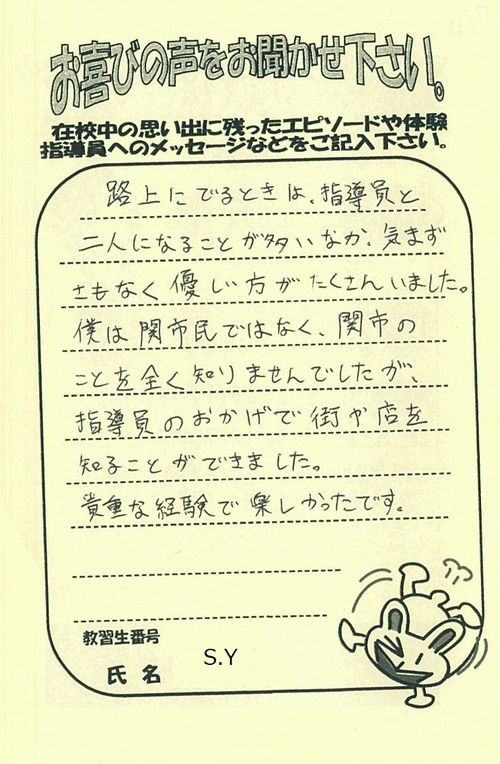 お喜びの声をお聞かせ下さい。
在校中の思い出に残ったエピソードや体験
指導員へのメッセージなどをご記入下さい。
路上にでるときは、指導員と
二人になることが多いなか、気まず
さもなく優しい方がたくさんいました。
僕は関市民ではなく、関市の
ことを全く知りませんでしたが、
指導員のおかげで街や店を
知ることができました。
貴重な経験で楽しかったです。
教習生番号
氏名 S.Y